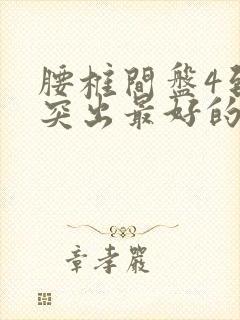 腰柱間盤4
突出最好的
章孝嚴